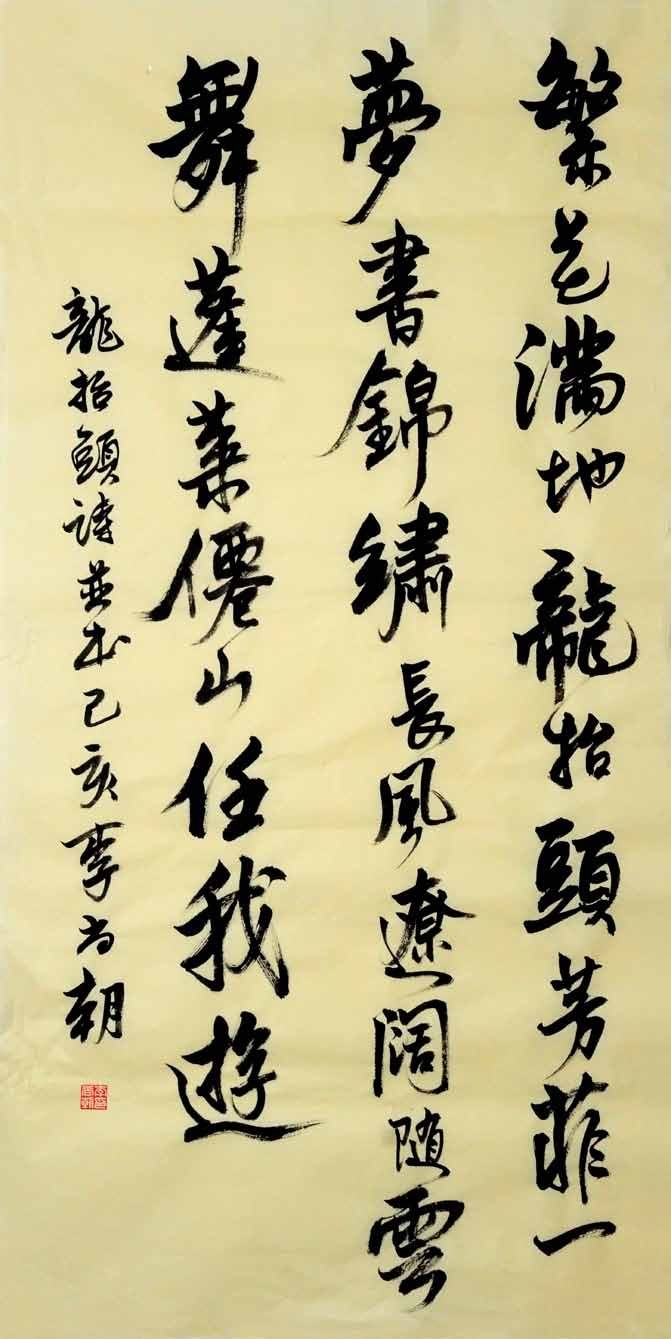 繁花滿地龍抬頭芳菲一
夢書錦繡長風遼闊隨雲
舞蓬萊僊山任我遊
龍抬頭詩並書己亥李尚朝